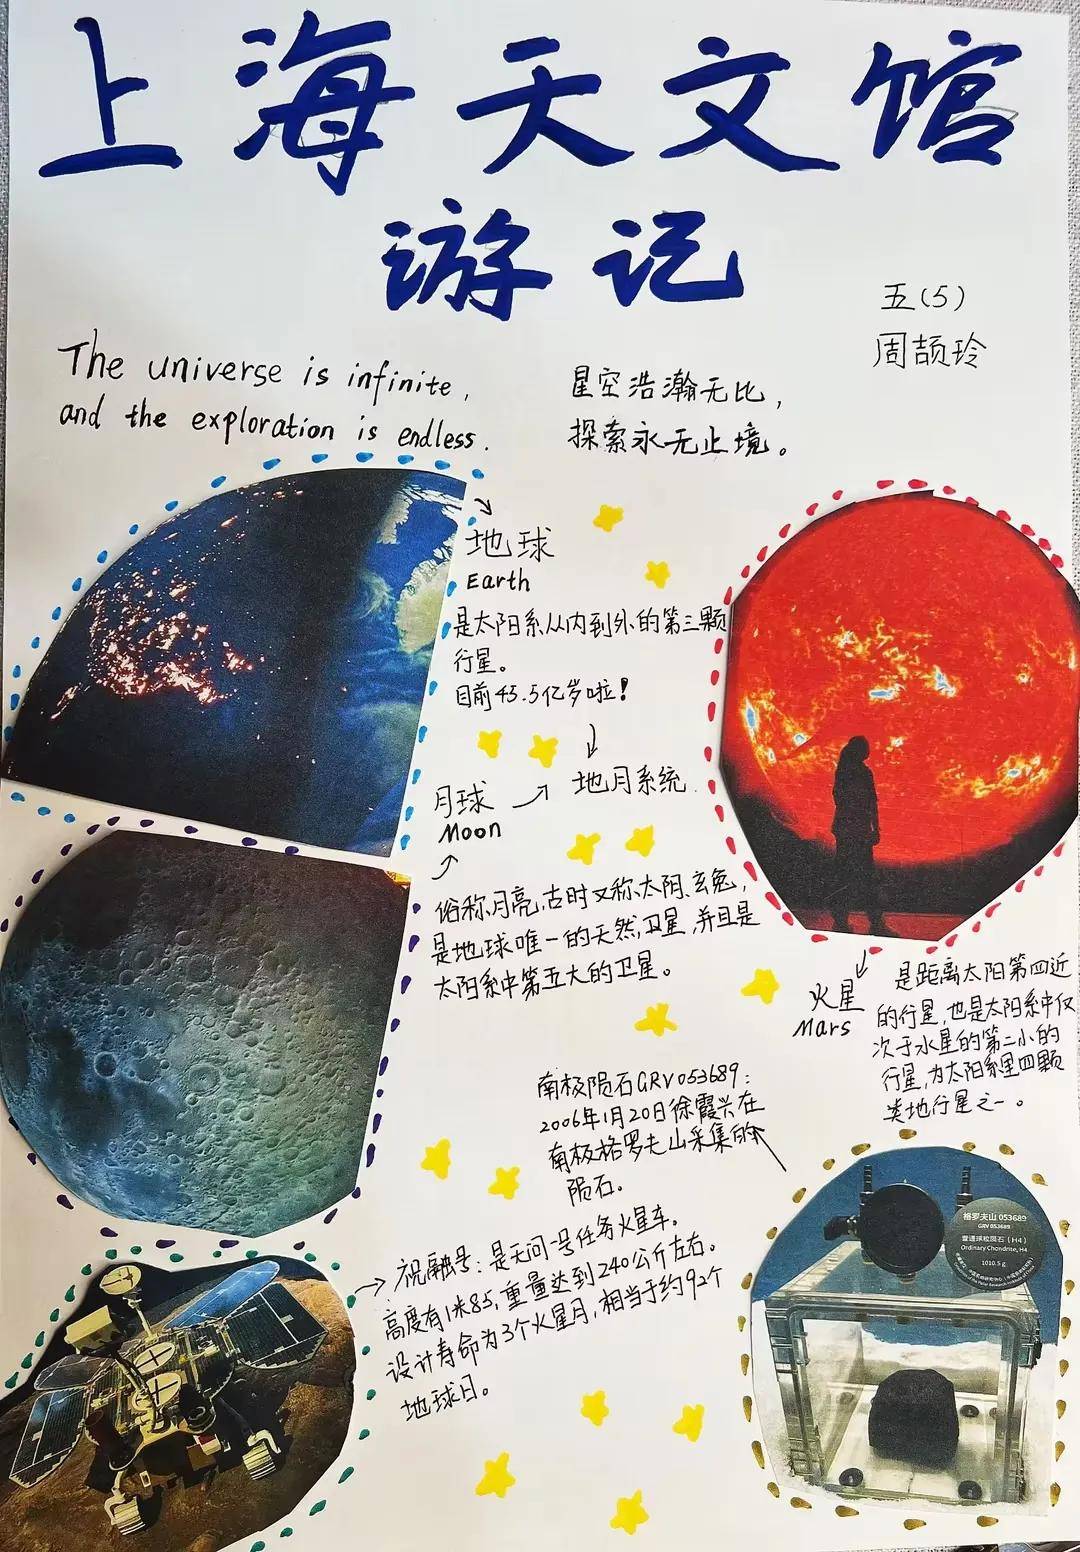 上海天文馆
游记
五(5)
周颉玲
The universe is infinite,
and the exploration is endless.
星空浩瀚无比，
探索永无止境。
地球
Earth
是太阳系从内到外的第三颗
行星。
目前45.5亿岁啦！
月球
Moon
地月系统
俗称月亮，古时又称太阴、玄兔，
是地球唯一的天然卫星，并且是
太阳系中第五大的卫星。
火星
Mars
是距离太阳第四近
的行星，也是太阳系中仅
次于水星的第二小的
行星，为太阳系里四颗
类地行星之一。
南极陨石GRV053689：
2006年1月20日徐霞兴在
南极格罗夫山采集的
陨石。
格罗夫山 053689
GRV 053689
普通球粒陨石（H4）
Ordinary Chondrite, H4
1010.5 g
祝融号：是天问一号任务火星车。
高度有1米85，重量达到240公斤左右。
设计寿命为3个火星月，相当于约92个
地球日。